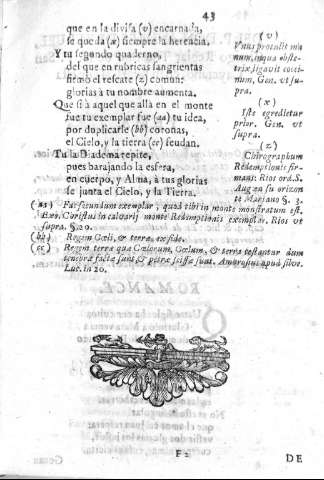 43
que en la divisa (v) encarna la,
se queda (x) siempre la herencia.
Y tu segundo quaderno,
del que en rubricas sangrientas
firmò el rescate (z) comun:
glorias à tu nombre aumenta.
Que si à aquel que allà en el monte
fue tu exemplar fue (aa) tu idea,
por duplicarle (bb) coronas,
el Cielo, y la tierra (cc) feudan.
Tu la Diadema repite,
pues barajando la esfera,
en cuerpo, y Alma, à tus glorias
se junta el Cielo, y la Tierra.
(v)
Vnus protulit ma
num, in qua obste-
trix, ligavit cocci-
num, Gen. vt su-
pra.
(x)
Iste egredietur
prior. Gen. vt
supra.
(z)
Chirographum
Redemptionis fir-
mant: Rios ord. S.
Aug. en su orizon
te Mariano §. 3.
(aa) Fac secundum exemplar; quod tibi in monte monstratum est.
Exo. Christus in calvarij monte Redemptionis exemplar. Rios vt
supra. §. 20.
(bb) Regem Cœli, & terræ exside.
(cc) Regem terra quæ Cælorum, Cælum, & terra testantur dum
tenebræ factæ sunt & petræ scissæ sunt. Ambrosius apud silve.
Luc. in 20.
F 2
DE